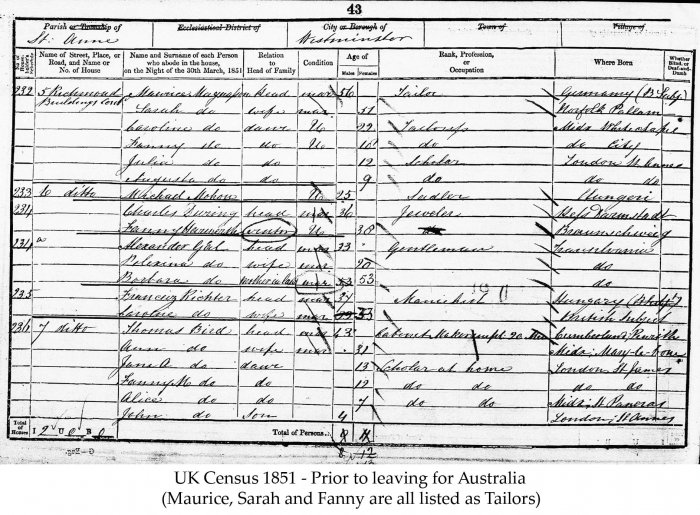 43
Parish or Township of Ecclesiastical District of City or Borough of Town of Village of
St. Anne Westminster
No. of House Name of Street, Place, or Road, and Name or No. of House Name and Surname of each Person who abode in the house, on the Night of the 30th March, 1851 Relation to Head of Family Condition Age of Males Females Rank, Profession, or Occupation Where Born Whether Blind, or Deaf-and-Dumb
232 5 Richmond Maurice head mar 56 Tailor Germany
Buildings Sarah do wife mar 51 Norfolk
Caroline do daur U 22 Tailoress Midx Whitechapel
Fanny do do U do do City
Julia do do 12 Scholar London St Annes
Augusta do do 9 do do do
233 6 ditto Michael U 25 Hungeri
234 Charles head mar 36 Jeweler Hess Darmstadt
Fanny visitor U Braunschweig
234 a Alexander head mar 33 Gentleman Transilvania
do wife mar do
Barbara do mother in law mar 53 do
235 head mar 37 Hungary
Caroline do wife mar British Subject
236 7 ditto Thomas Bird head mar 43 Cabinet Maker empl 20 Men Cumberland, Penrith
Ann do wife mar 31 Midx; Mary-le-bone
Jane A. do daur 13 Scholar at home London St James
Fanny M. do do 12 do do do do
Alice do do 7 do do Midx; St Pancras
John do Son 4 London; St Annes
Total of Houses I 2 U 0 B 0 Total of Persons
UK Census 1851 - Prior to leaving for Australia
(Maurice, Sarah and Fanny are all listed as Tailors)